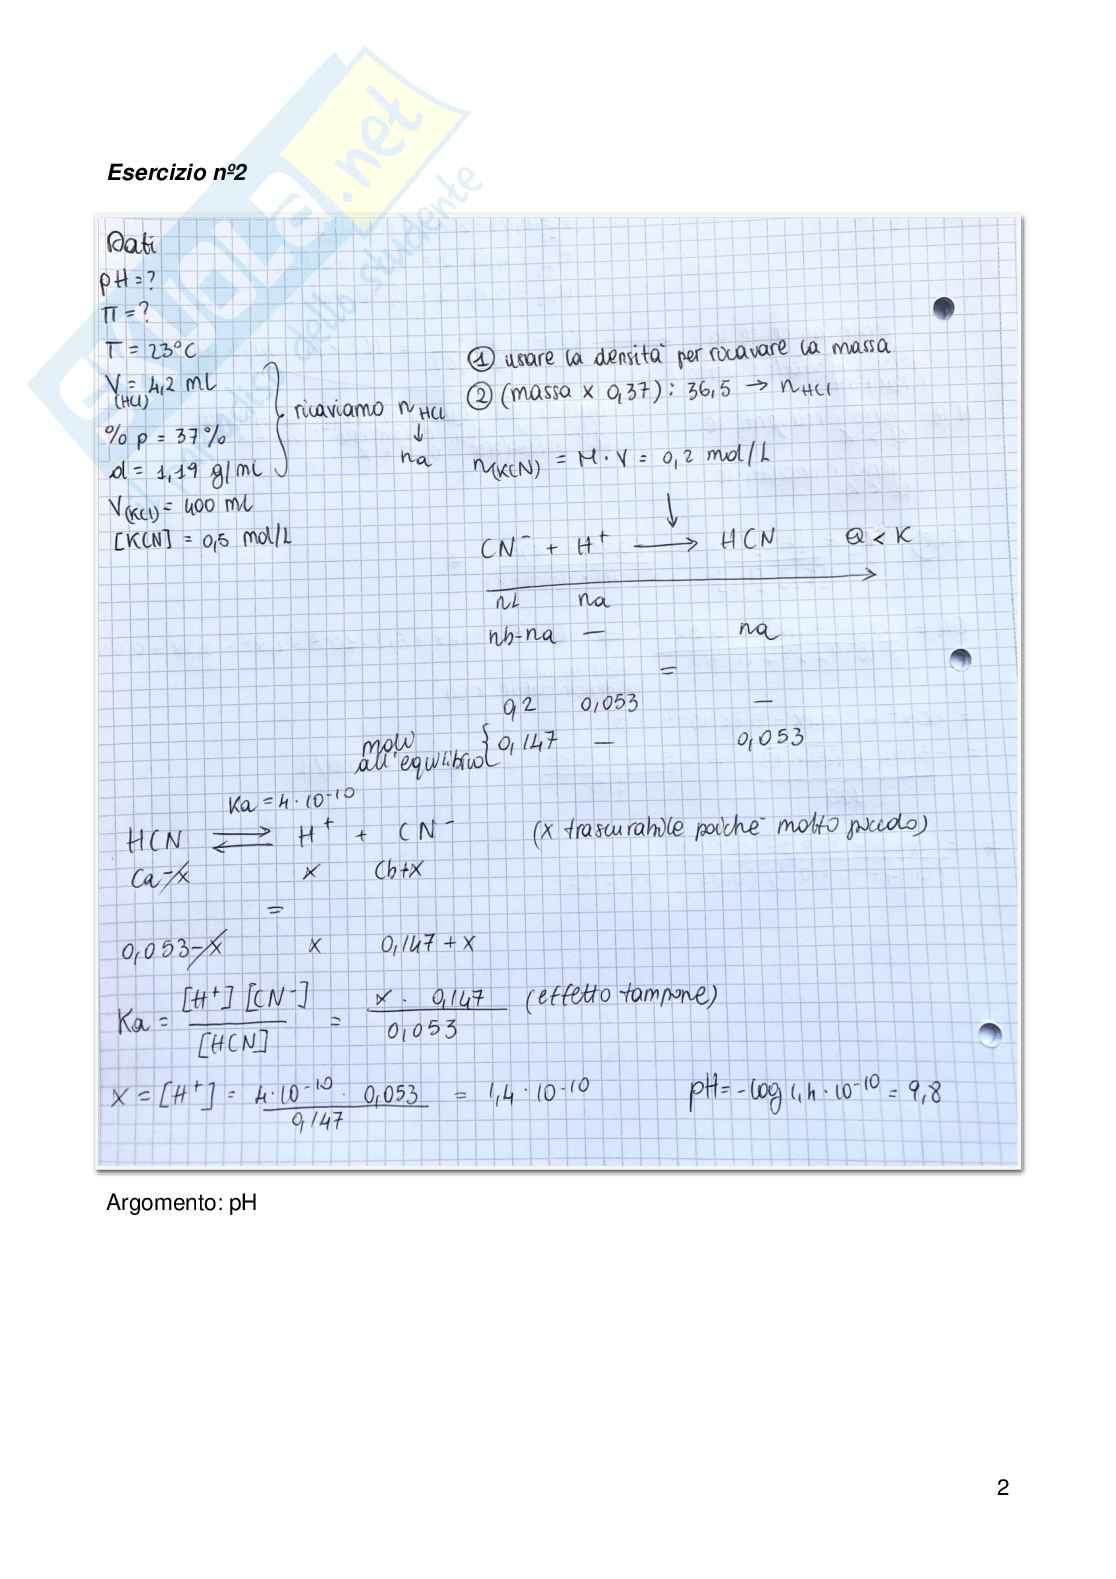 Esercizio nº2
Dati
pH = ?
π = ?
T = 23°C
V(HCl) = 4,2 ml
% p = 37%
d = 1,19 g/ml
V(KCl) = 400 ml
[KCN] = 0,5 mol/L
ricaviamo nHCl
↓
na
① usare la densità per ricavare la massa
② (massa x 0,37) : 36,5 → nHCl
n(KCN) = M · V = 0,2 mol/L
↓
CN⁻ + H⁺ → HCN Q < K
nb na
nb-na — na
=
0,2 0,053 —
moli all'equilibrio { 0,147 — 0,053
Ka = 4·10⁻¹⁰
HCN ⇌ H⁺ + CN⁻ (x trascurabile poiché molto piccolo)
Ca-x x Cb+x
=
0,053-x x 0,147 + x
Ka = [H⁺] [CN⁻] / [HCN] = x · 0,147 / 0,053 (effetto tampone)
x = [H⁺] = 4·10⁻¹⁰ · 0,053 / 0,147 = 1,4 · 10⁻¹⁰ pH = -log 1,4 · 10⁻¹⁰ = 9,8
Argomento: pH
2
skuola.net
dello studente